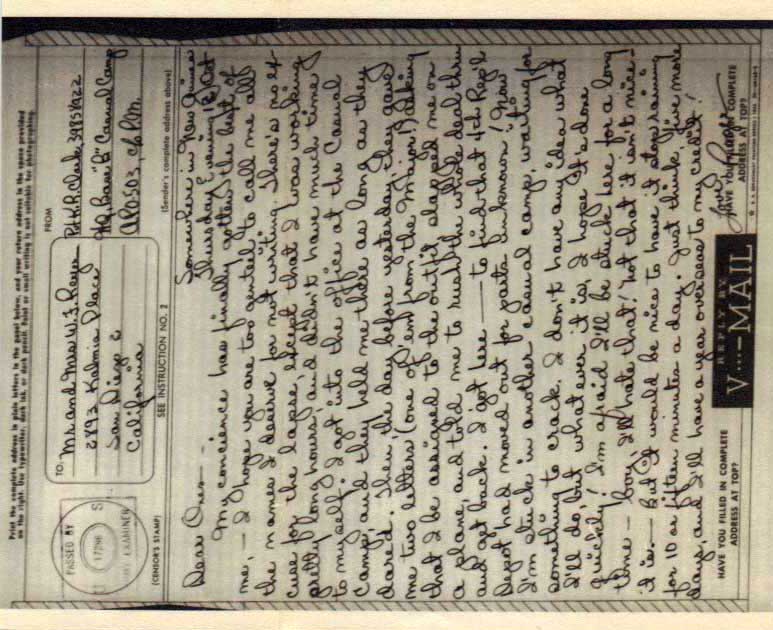 Print the complete address in plain letters in the panel below, and your return address in the space provided
on the right. Use typewriter, dark ink, or dark pencil. Faint or small writing is not suitable for photographing.
TO:
Mr. and Mrs. W. J.
2893 Kalmia Place
San Diego 2
California
FROM
Pvt. R. R. Clark, 39851922
Hq. Base "B" Casual Camp
APO 503, c/o P.M.
PASSED BY
S
17296
ARMY EXAMINER
(CENSOR'S STAMP)
SEE INSTRUCTION NO. 2
(Sender's complete address above)
Somewhere in New Guinea
Thursday Evening 12 Oct
Dear Ones -
My concience has finally gotten the best of
me, - I hope you are too genteel to call me all
the names I deserve for not writing. There's no ex-
cuse for the lapse, except that I was working
pretty long hours, and didn't have much time
to myself. I got into the office at the Casual
Camp, and they held me there as long as they
dared. Then the day before yesterday, they gave
me two letters (one of 'em from the Major!) asking
that I be assigned to the outfit, slapped me on
a plane, and told me to rush the whole deal thru
and get back. I got here — to find that 4th Repl
Depot had moved out for parts unknown! Now
I'm stuck in another casual camp, waiting for
something to crack. I don't have any idea what
I'll do, but what ever it is, I hope it's done
quickly! I'm afraid I'll be stuck here for a long
time - boy, I'll hate that! Not that it isn't nice -
it is. — But it would be nice to have it stop raining
for 10 or fifteen minutes a day. Just think, five more
days, and I'll have a year overseas to my credit!
Love,
HAVE YOU FILLED IN COMPLETE
ADDRESS AT TOP?
REPLY BY
V···—MAIL
HAVE YOU FILLED IN COMPLETE
ADDRESS AT TOP?